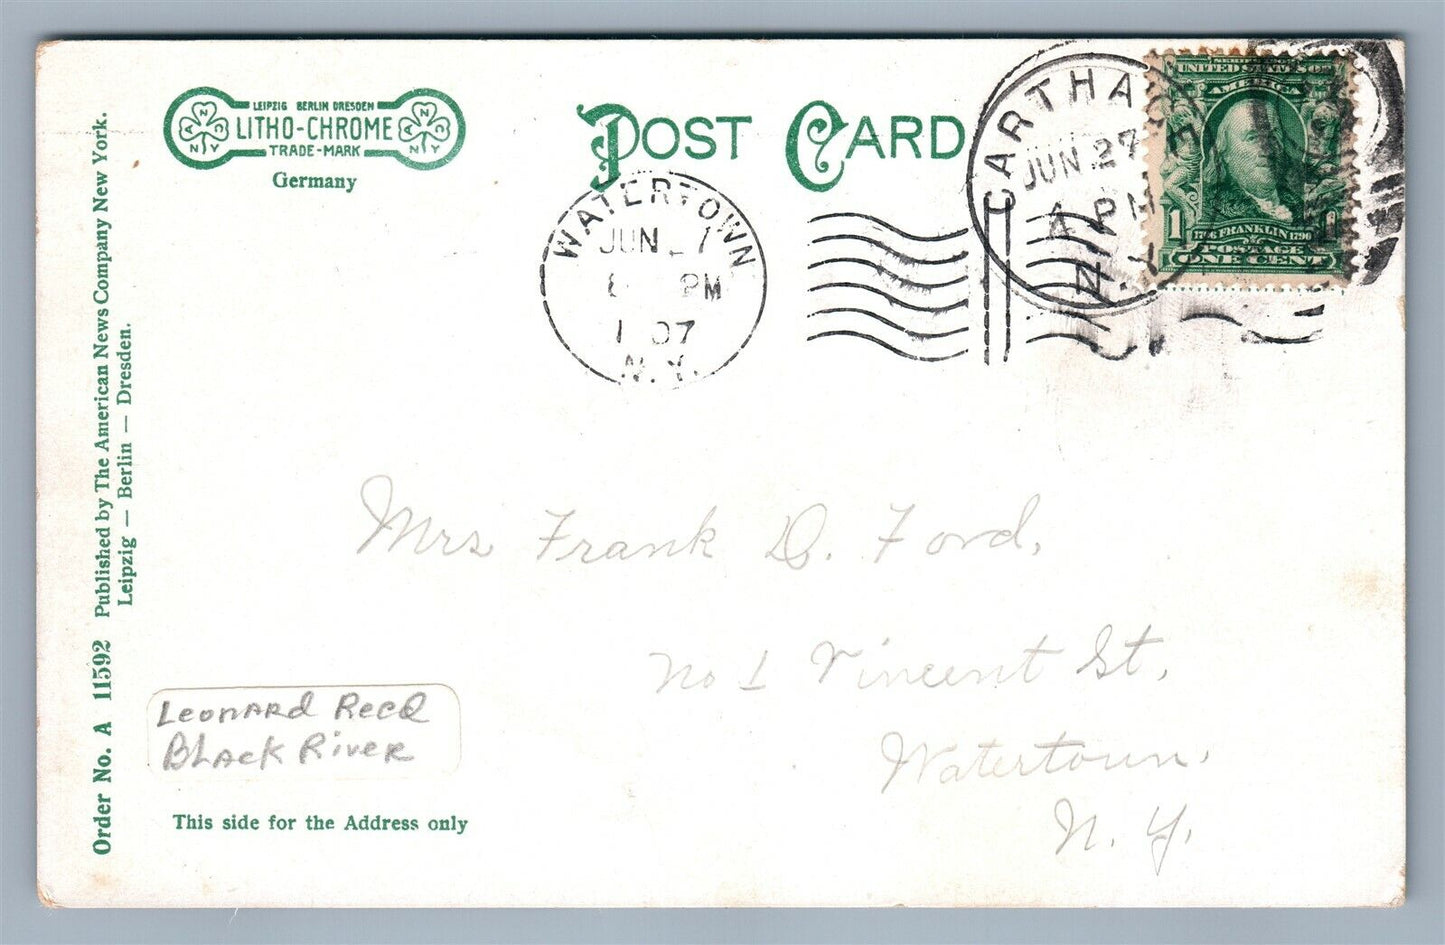 LEIPZIG BERLIN DRESDEN
LITHO-CHROME
TRADE-MARK
ANCNY
ANCNY
Germany
POST CARD
WATERTOWN
JUN
PM
07
N.Y.
CARTHAGE
JUN 27
4 PM
N.Y.
UNITED STATES OF
AMERICA
1
1706 FRANKLIN 1790
POSTAGE
ONE CENT
Order No. A 11592 Published by The American News Company New York.
Leipzig — Berlin — Dresden.
Mrs Frank D. Ford,
No 1 Vincent St,
Watertown,
N. Y.
Leonard Recd
Black River
This side for the Address only